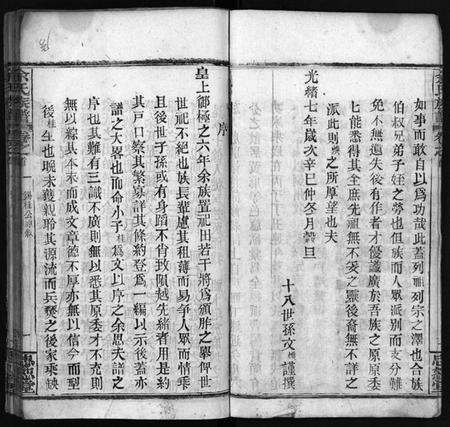 如事而敢自以爲功哉此蓋列祖列宗之澤也合族
伯叔兄弟子姪之勞也但族而人眾派別而支分難
免不無遺失後有作者才優識廣於吾族之原原委
七能悉得其全庶先祖無不妥之靈後裔無不詳之
派此則之所厚望也夫
光緒七年歲次辛巳仲冬月穀旦
十八世孫文謹撰
序
皇上御極之六年余族置祀田若干將爲頒胙之舉俾世
世祀不絕也族長輩慮其租薄而易爭人眾而情乖
且後世子孫或有身蹈不肖致隕越先緒者用是約
其戶口察其繁寡詳其條約登爲一編以示後蓋亦
譜之大畧也而命小子爲文以序之余思夫譜之
序也其難有三識不廣則無以悉其原委才不克則
無以綜其本末而成文章德不厚亦無以信今而型
後生也晚未獲親聆其源流而兵燹之後家乘
余氏族譜